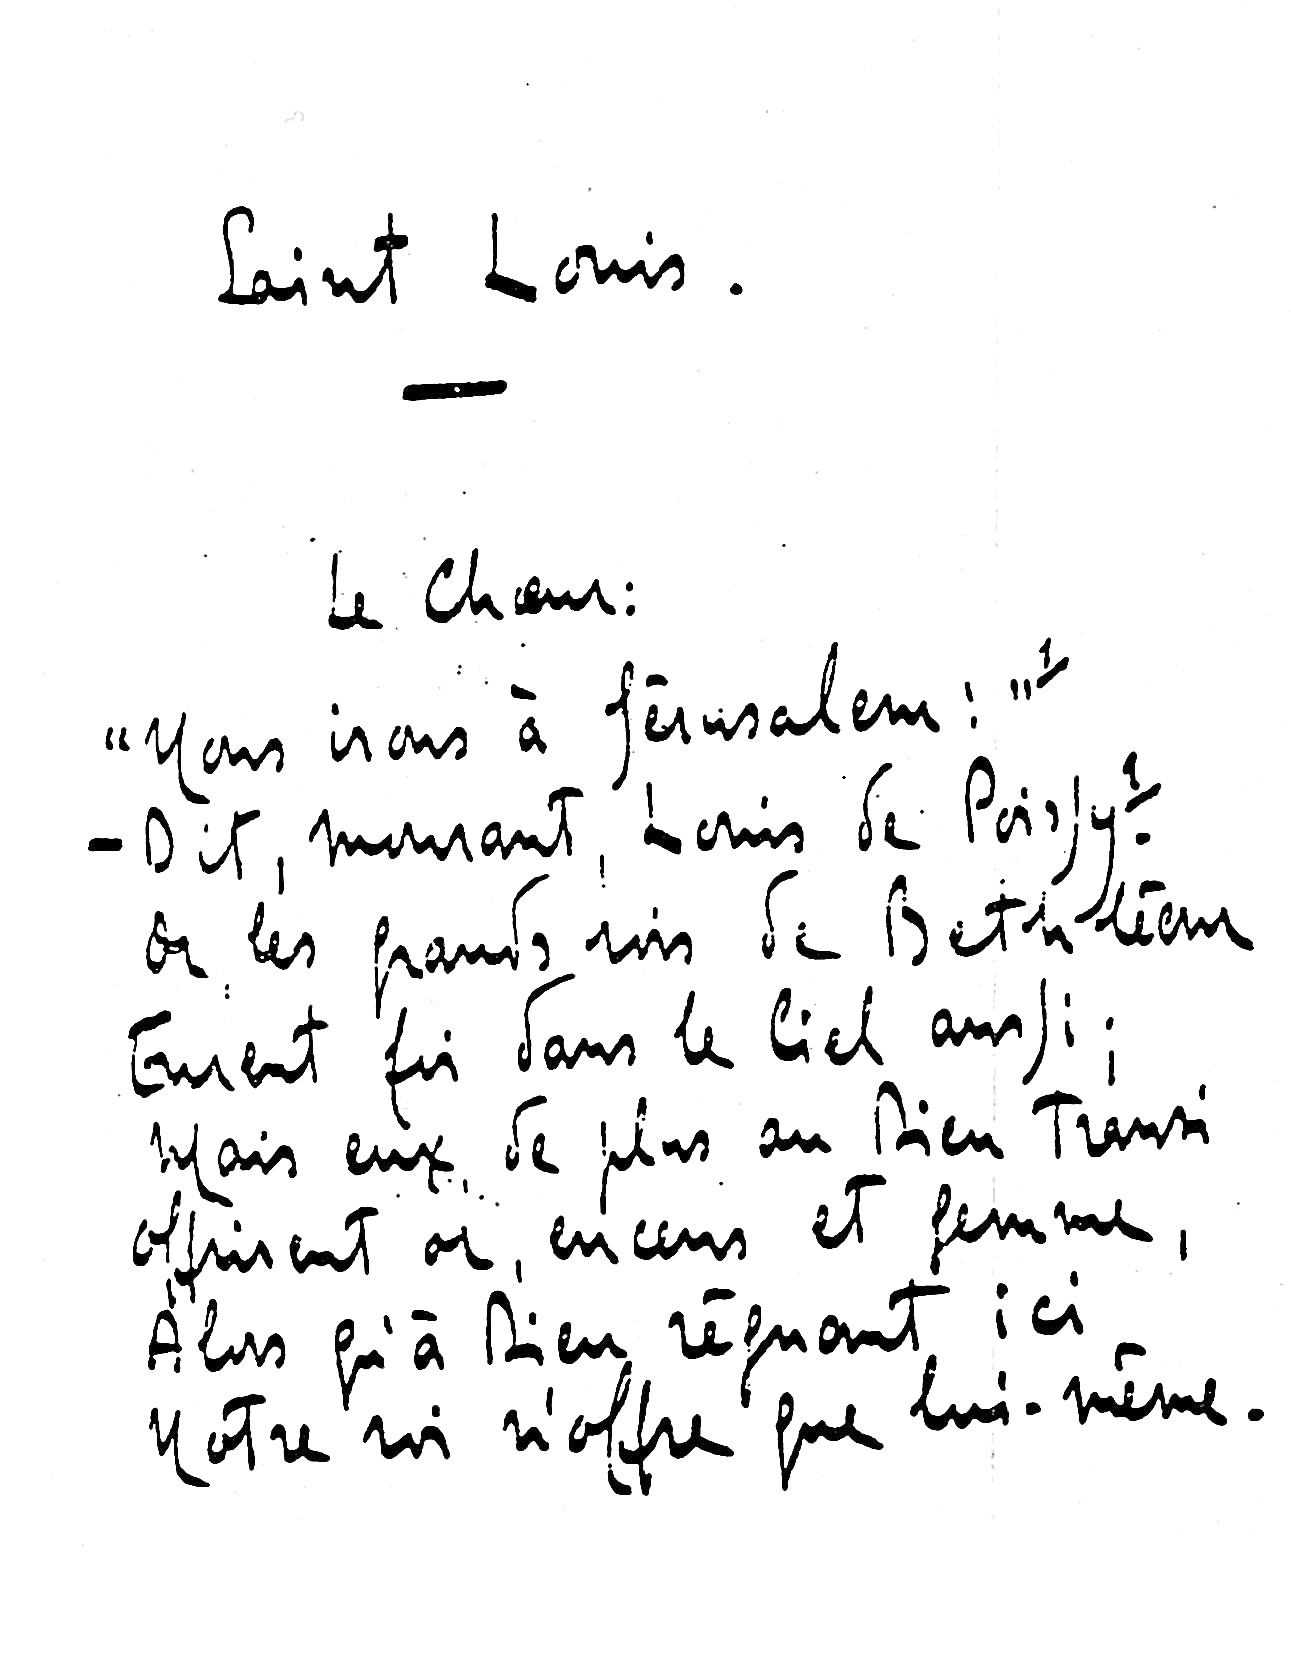 Saint Louis.
Le Chœur:
"Nous irons à Jérusalem!"¹
- Dit, mourant, Louis de Poissy¹.
Or les grands rois de Bethléem
Eurent foi dans le Ciel aussi;
Mais eux, de plus au Dieu transi
Offrirent or, encens et gemme,
Alors qu'à Dieu régnant ici
Notre roi n'offre que lui-même.